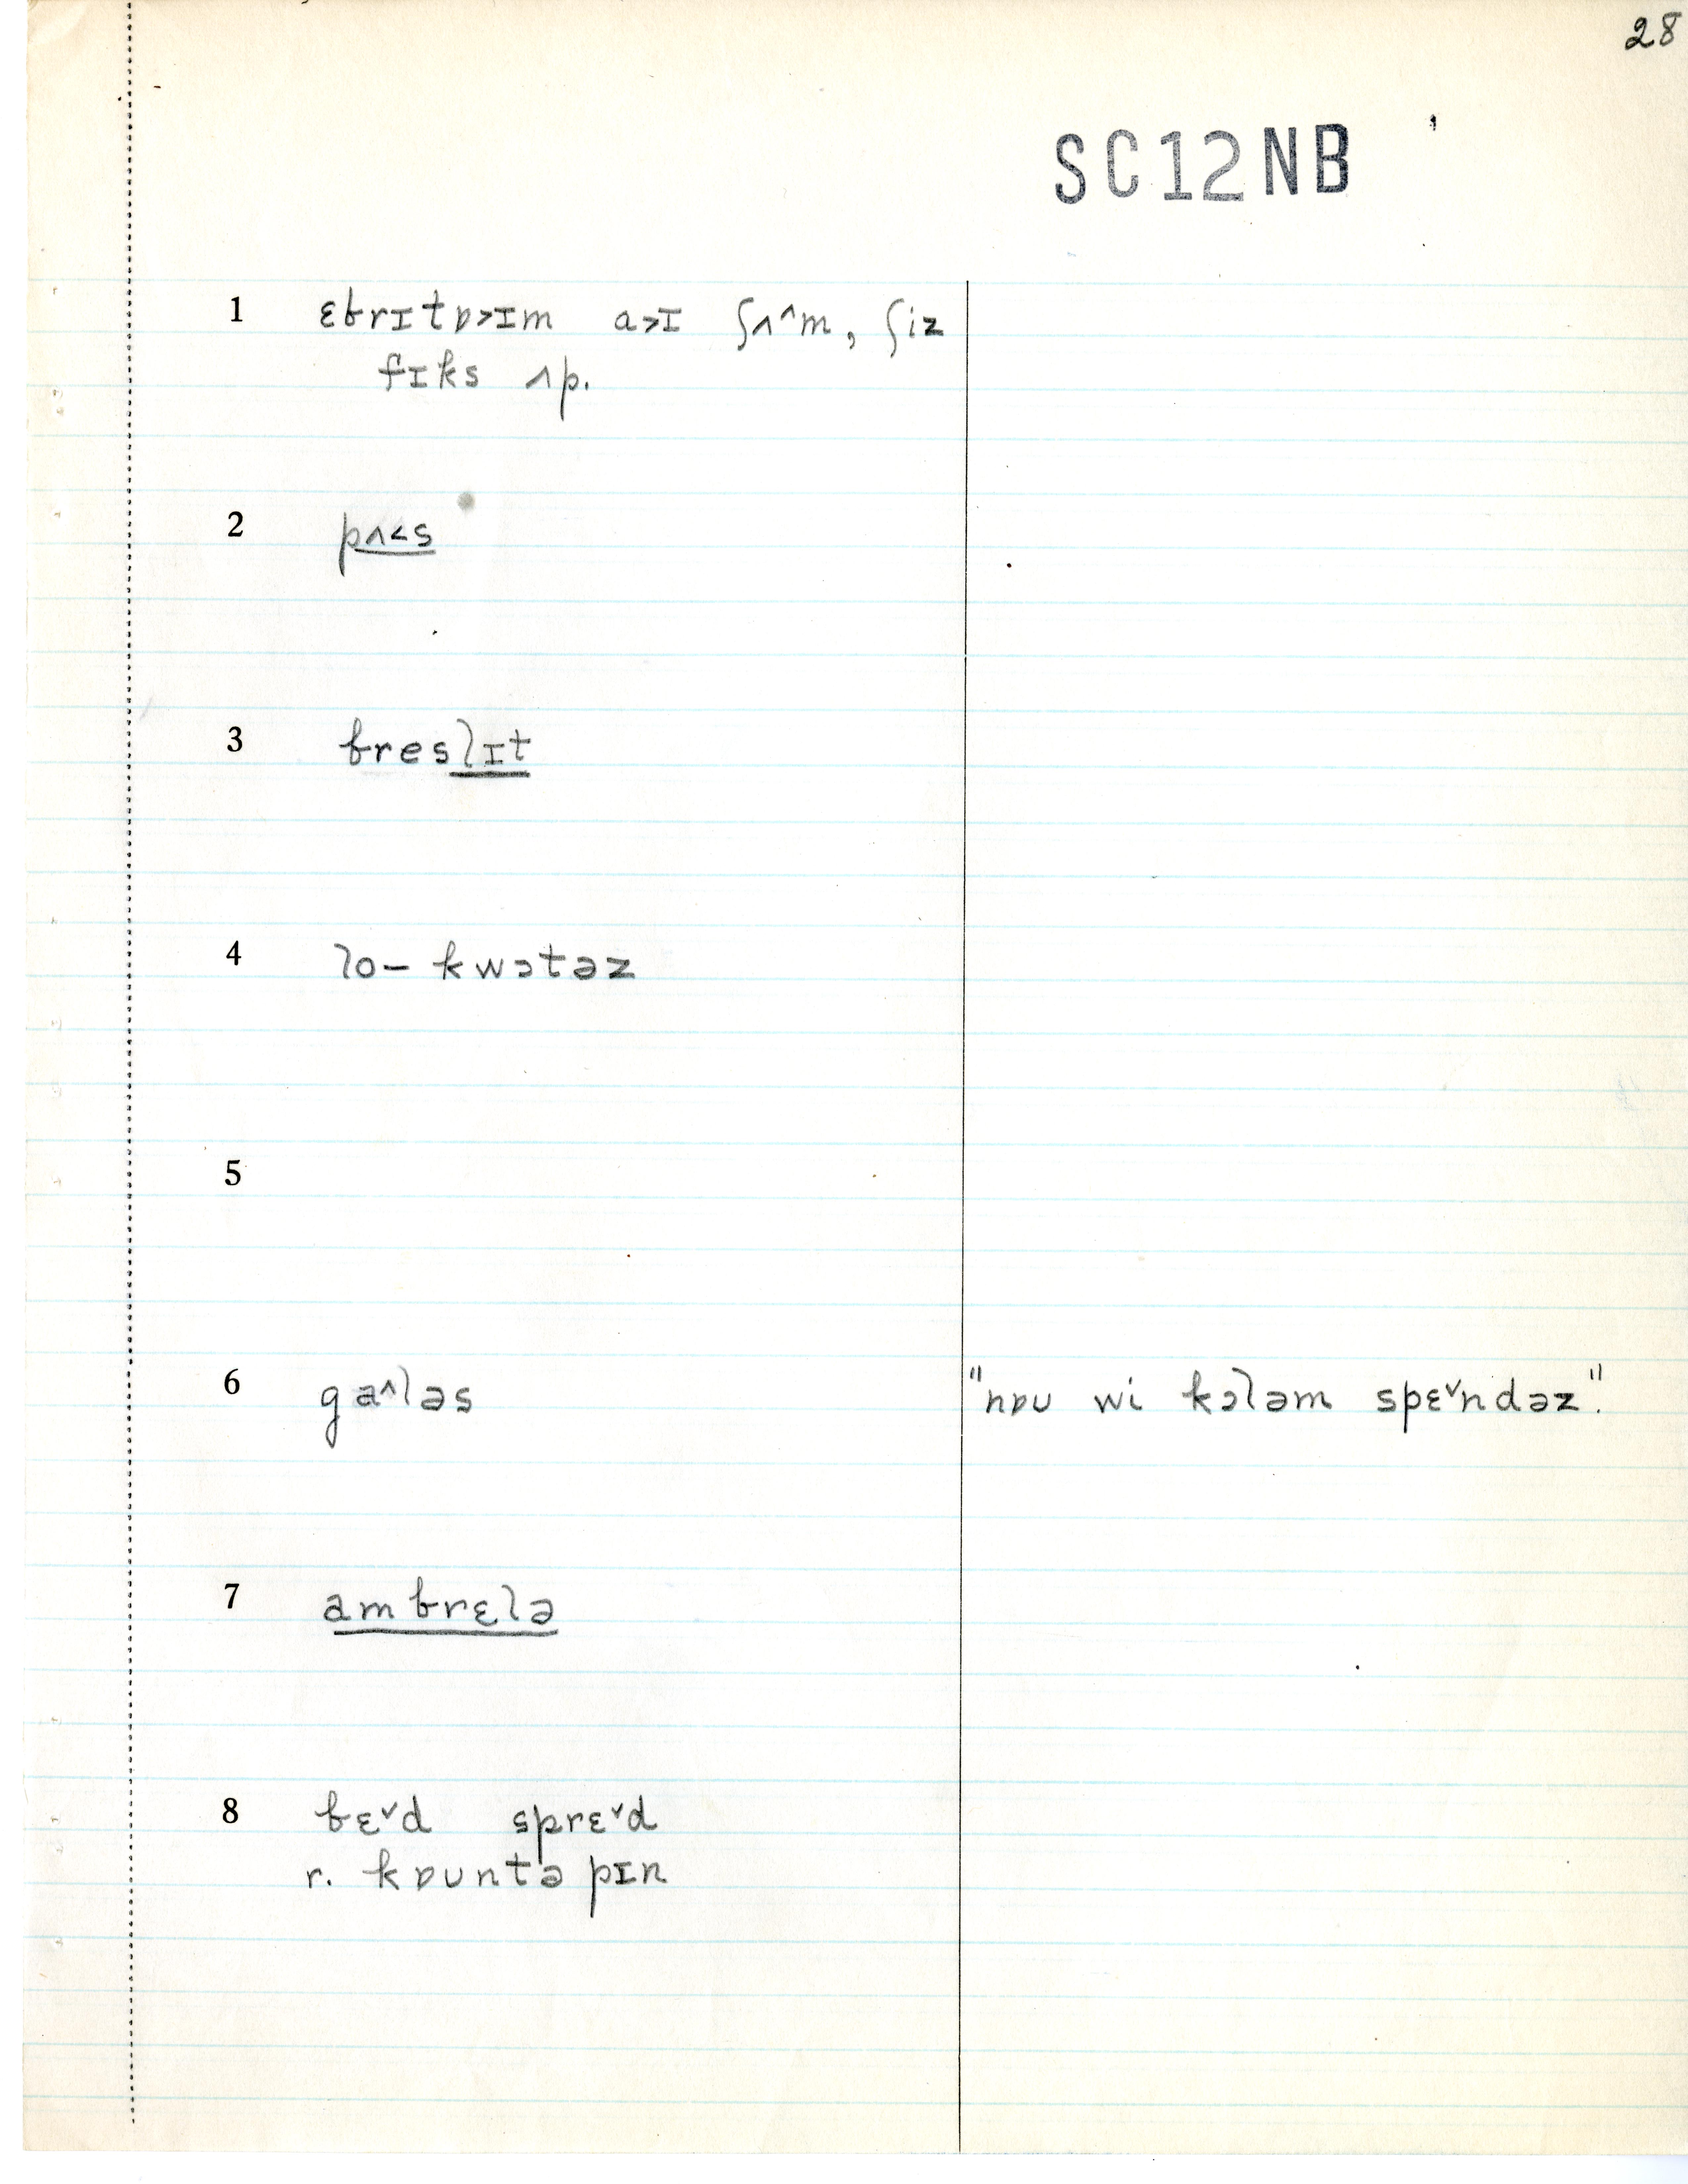 28
SC12NB
1 ɛbrɪtɒ>ɪm a>ɪ ʃʌ^m, ʃiz
fɪks ʌp.
2 pʌ<s
3 breslɪt
4 lo– kwɔtəz
5
6 ga^ləs "nɒʊ wi kɔləm spɛˇndəz".
7 ambrɛlə
8 bɛˇd sprɛˇd
r. kɒʊntə pɪn